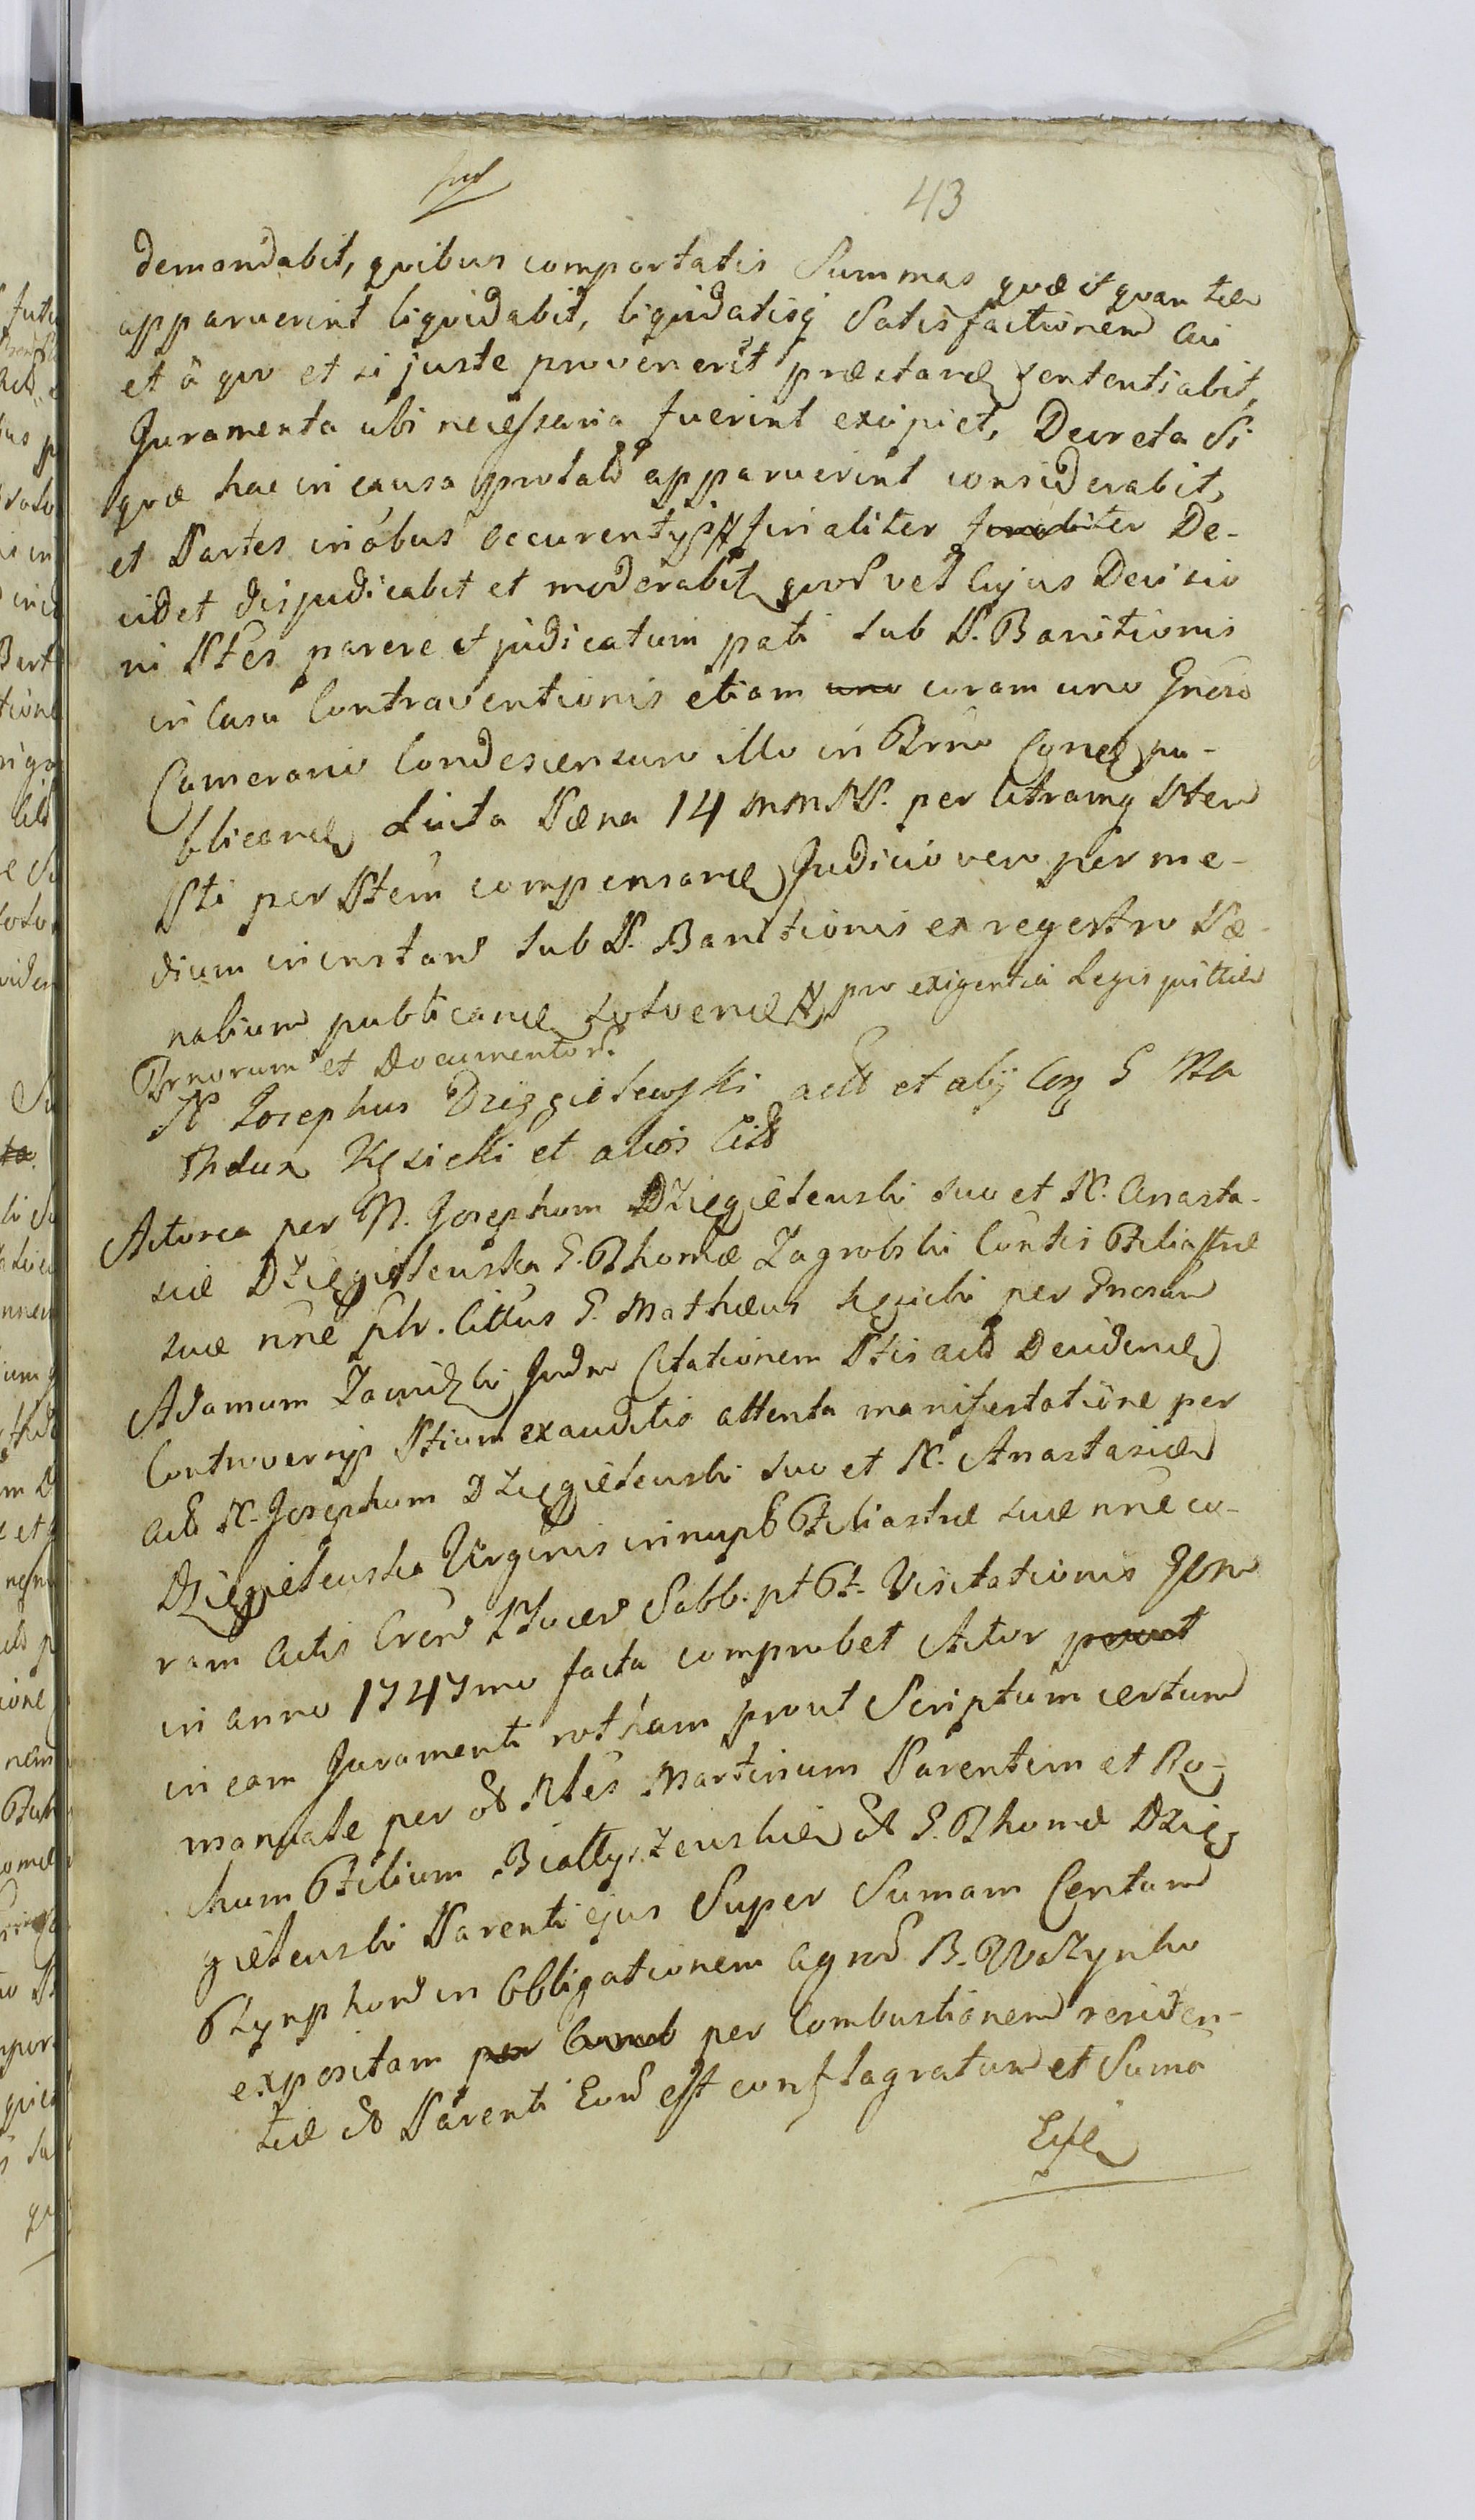 43
demandabit, quibus comportatis Summas quæ et quantæ
apparuerint liquidabit, liquidatisq Satisfactionem cui
et â quo et si juste provenerit præstand sententiabit,
Juramenta ubi necessaria fuerint excipiet, Decreta Si
quæ hac in causa prolata apparuerint considerabit,
et Partes in obus occurentys finaliter De-
cidet disjudicabit et moderabit quod vel cujus Decisio
ni Ptes parere et judicatum pati sub P. Banitionis
in Casu Contraventionis etiam uno coram uno Gnoso
Camerario Condescensuro illo in Trno Cond pu-
blicand Luita Pæna 14 MMP. per utramq Ptem
Pti per Ptem compensand Judicio vero per me-
dium in instan sub P. Banitionis ex regestro Pæ-
nalium publicand solvend pro exigentia Legis justitiæ
Trnorum et Documentor
N Josephus Dzięgielewski act et alij Con G Ma
Thæum Kęsicki et alios Citt
Actorea per N. Josephum Dzięgielewski suo et N. Anasta-
siæ Dzięgielewska G. Thomæ Zagrobski Contis Filiastræ
suæ nne plr. Cittus G. Mathæus Kęsicki per Gnosum
Adamum Zawidzki Citationem Ptis act Decidend
Controversijs Ptium exauditis attenta manifestatione per
act N. Josephum Dzięgielewski suo et N. Anastasiæ
Dzięgielewska Virginis innup Filiastræ suæ nne co-
ram Actis Cren Plocen Sabb. pt F. Visitationis
in anno 1747mo facta comprobet Actor prout
in eam Juramenti rotham prout Scriptum certum
manuale per Nles Martinum Parentem et Ro-
chum Filium Białłyszewskie G. Thomæ Dzię
gielewski Parenti ejus Super Sumam Centum
Tynphon in Obligationem agnor B. Wozynko
expositam per per Combustionem residen-
tiæ Parenti Eor est conflagratum et Suma